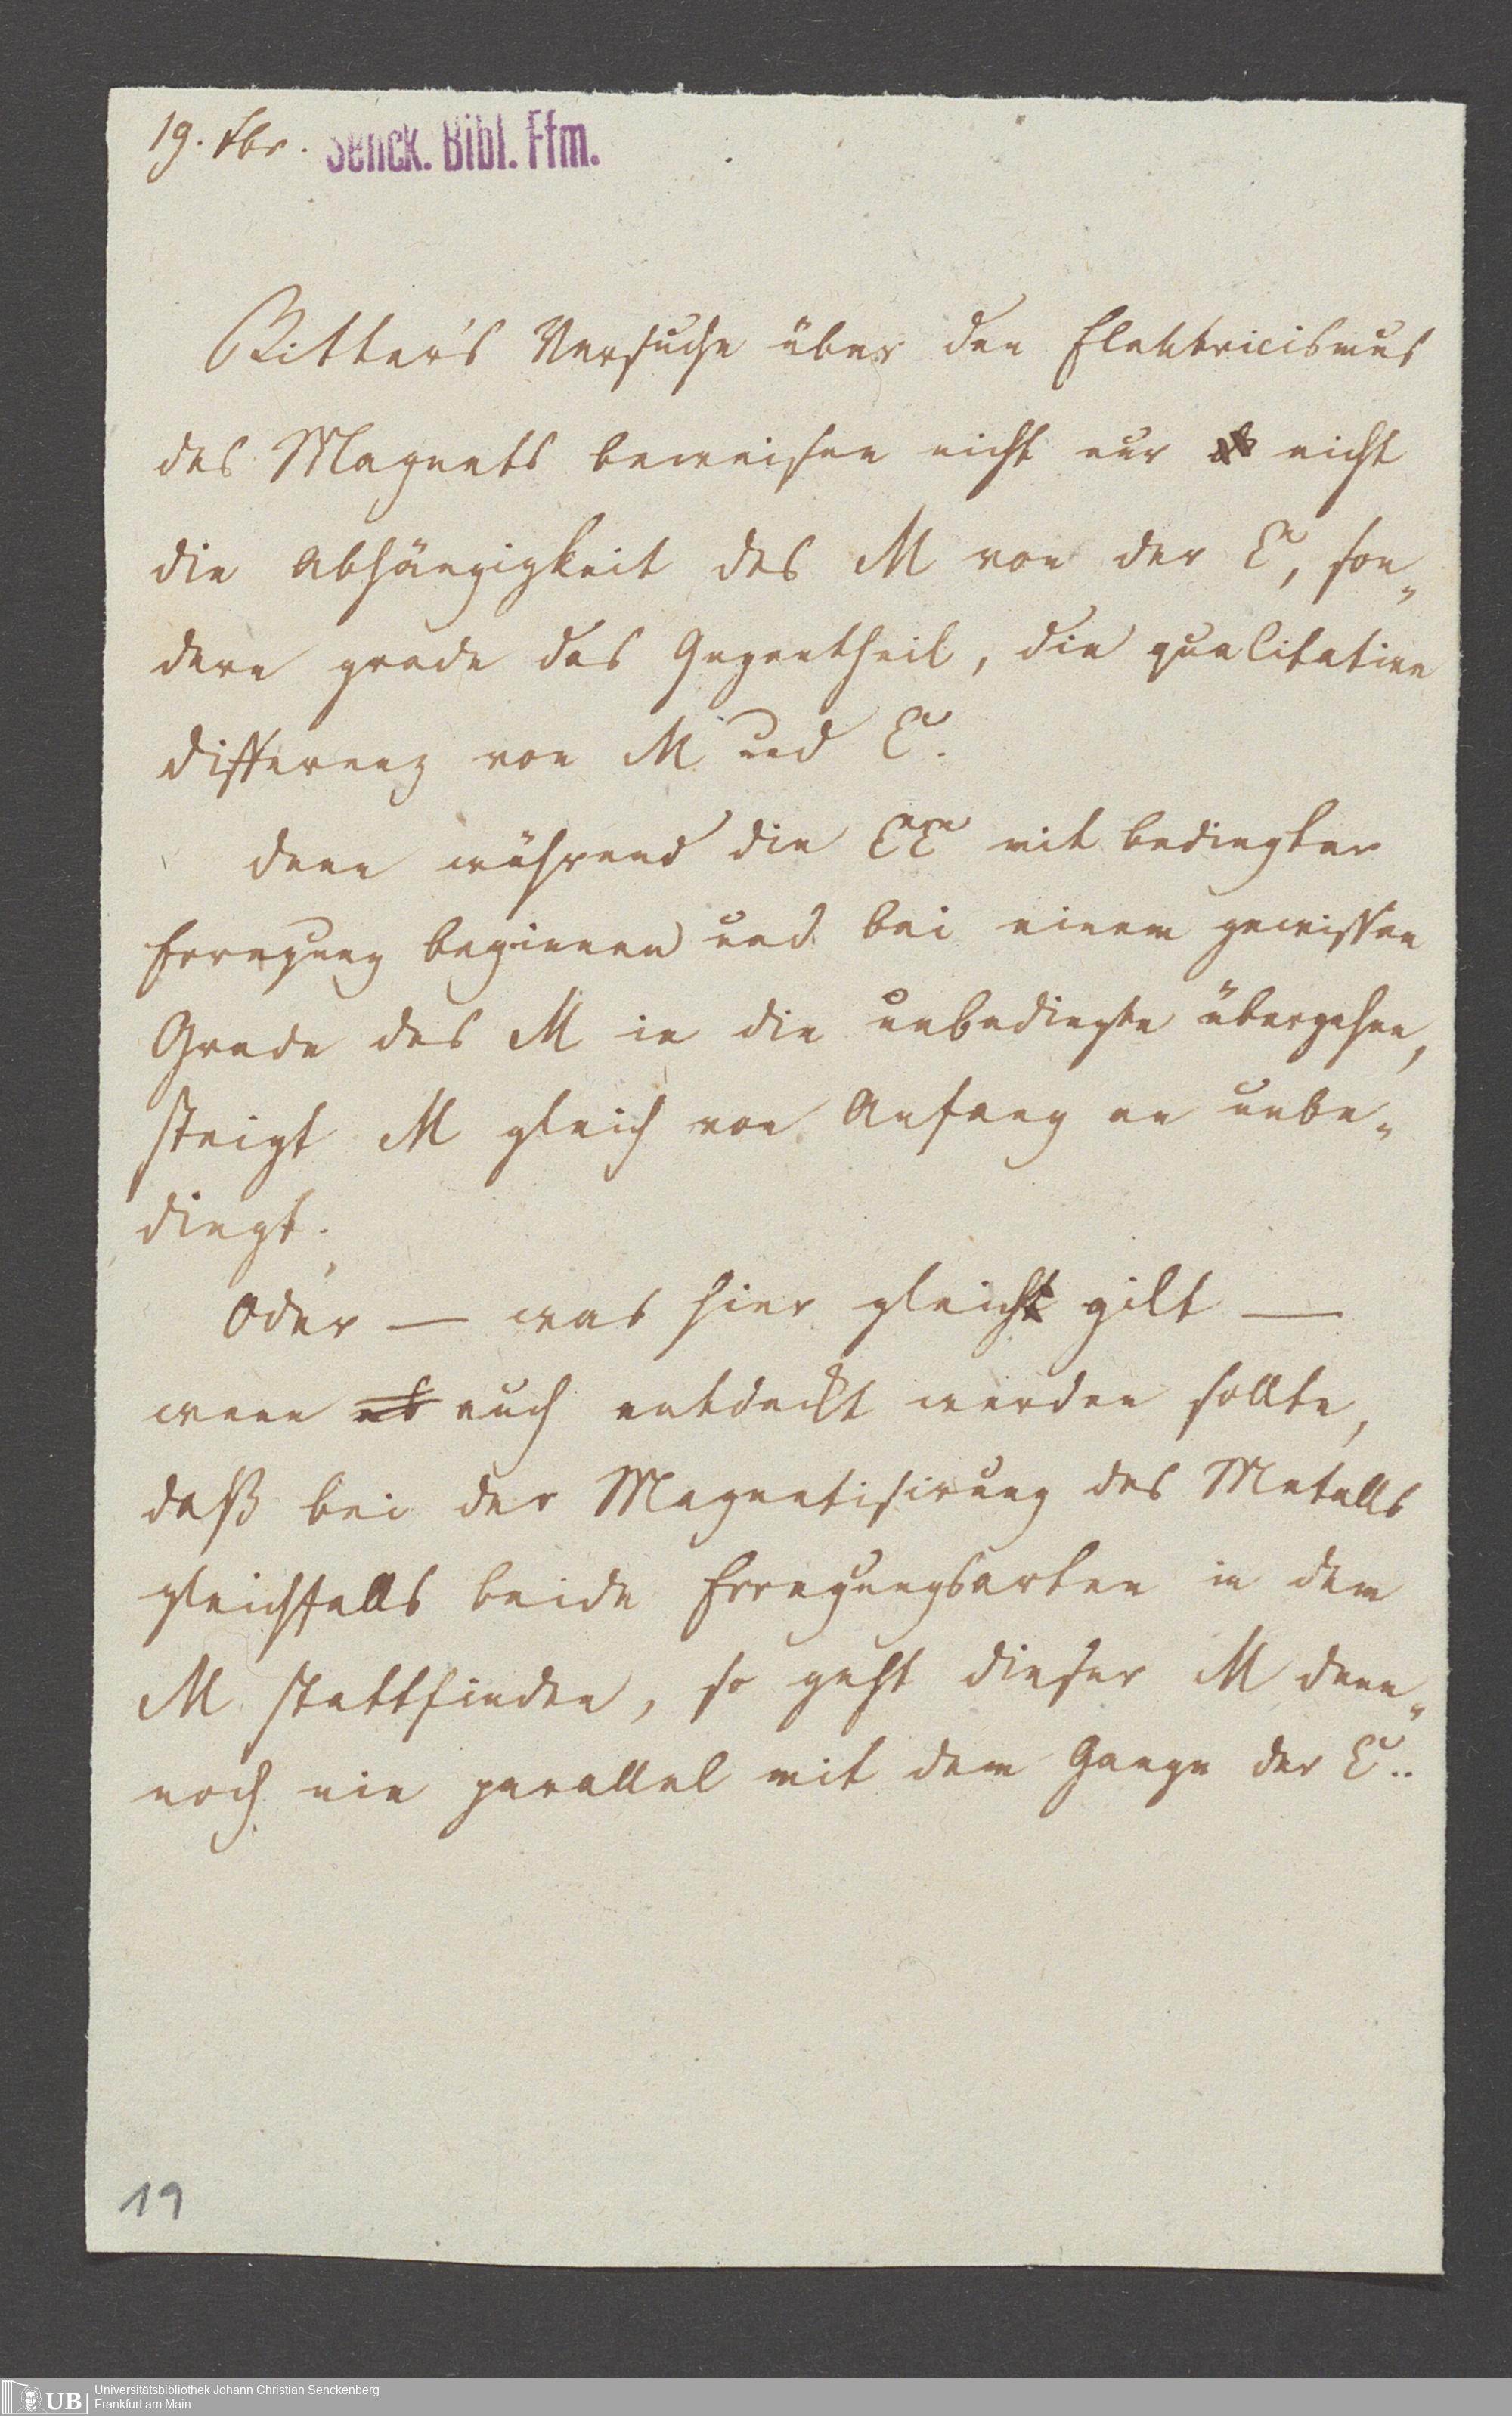 19. Fbr.
Senck. Bibl. Ffm.
Ritter's Versuche über den Elektricismus
des Magnets beweisen nicht nur nicht
die Abhängigkeit des M von der E, son-
dern grade das Gegentheil, die qualitative
Differenz von M und E.
Denn während die EE mit bedingter
Erregung beginnen und bei einem gewissen
Grade des M in die unbedingte übergehen,
steigt M gleich von Anfang an unbe-
dingt.
Oder — was hier gleich gilt —
wenn auch entdeckt werden sollte,
daß bei der Magnetisirung des Metalls
gleichfalls beide Erregungsarten in dem
M stattfinden, so geht dieser M den-
noch nie parallel mit dem Gange der E..
19
UB
Universitätsbibliothek Johann Christian Senckenberg
Frankfurt am Main